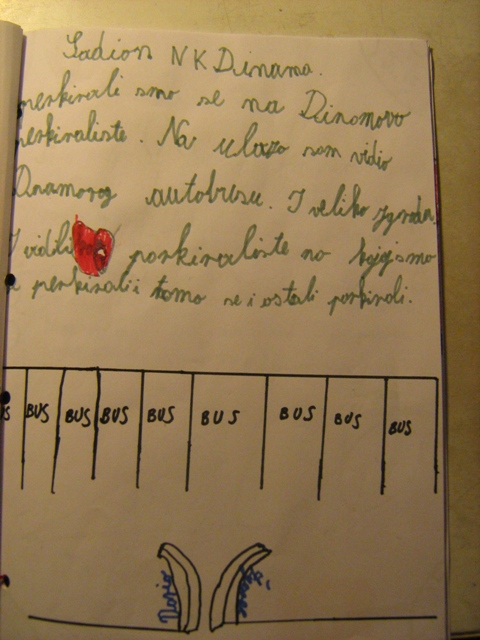 Sadion NK Dinama.
perkirali smo se na Dinomovo
perkiraliste. Na ulazo sam vidio
Dnamovog autobusu. I veliko zgroda.
I vidili porkiraliste no kojojsmo
perkirali i tomo se i ostali porkiroli.
BUS BUS BUS BUS BUS BUS BUS BUS